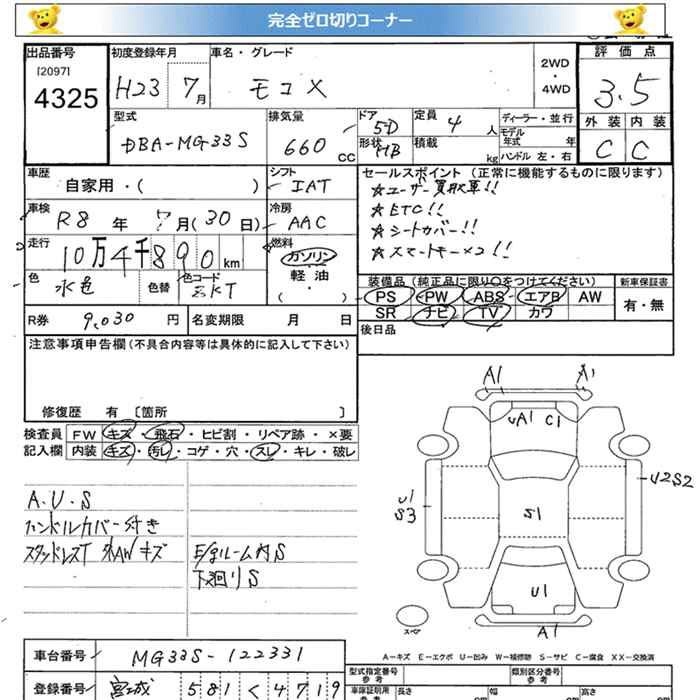 完全ゼロ切りコーナー
出品番号 初度登録年月 車名・グレード 2WD ・ 4WD 評価点
[2097]
4325 H23 7月 モコX 3.5
型式 排気量 ドア 定員 ディーラー・並行 外装 内装
DBA-MG33S 660 CC 5D 4人 モデル年式 年
形状 HB 積載 kg ハンドル 左・右 C C
車歴 自家用・( ) シフト IAT セールスポイント (正常に機能するものに限ります)
★ユーザー買取車!!
車検 R8年 7月(30日) 冷房 AAC ★ETC!!
★シートカバー!!
走行 10万4千890km 燃料 ガソリン ★スマートキー×2!!
軽・油
( ・ )
色 水色 色替 色コード 装備品 (純正品に限り○をつけてください) 新車保証書
PS PW ABS エアB AW 有・無
SR ナビ TV カワ
R券 9,030円 名変期限 月 日 後日品
注意事項申告欄(不具合内容等は具体的に記入して下さい)
修復歴 有 [箇所 ]
検査員 FW キズ・飛石・ヒビ割・リペア跡・×要
記入欄 内装 キズ・汚レ・コゲ・穴・スレ・キレ・破レ
A.U.S
ハンドルカバー付き
スタッドレスT 外AWキズ E/gルーム内S
下廻りS
A1 A1
UA1 C1
U2S2
U1
S3
S1
U1
A1
スペア
A-キズ E-エクボ U-凹み W-補修跡 S-サビ C-腐食 XX-交換済
車台番号 MG33S-122331 型式指定番号 類別区分番号
参考 参考
登録番号 宮城 581 く 4719 車庫証明用 長さ 幅 高さ
参考